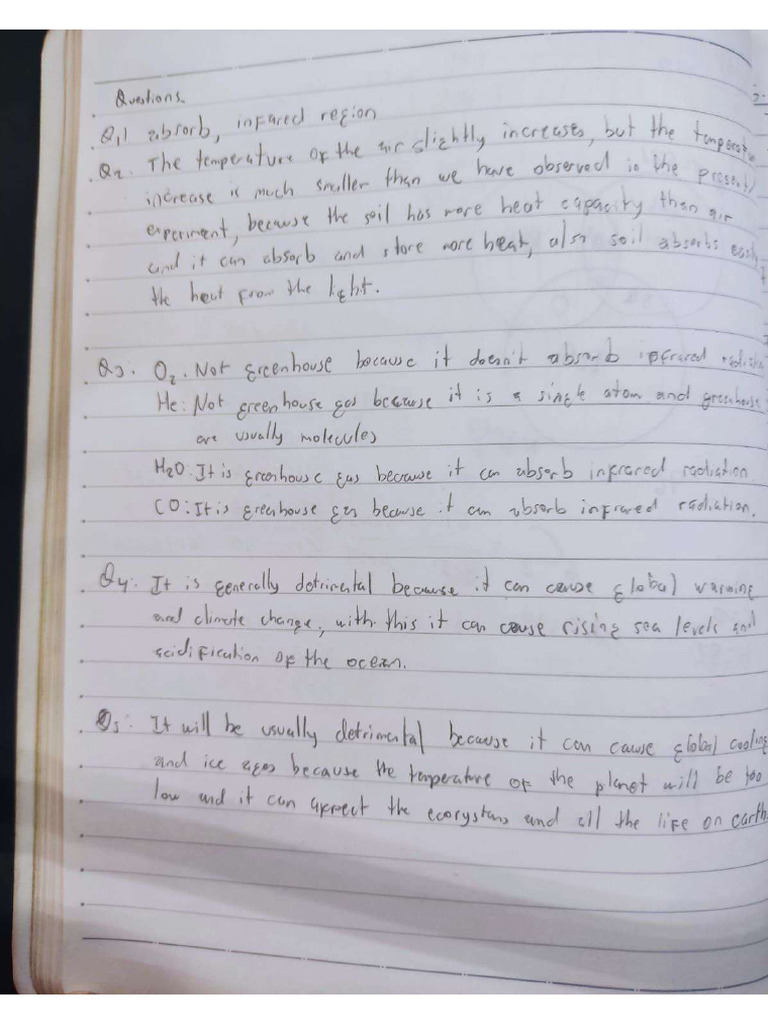 Questions.
Q1 absorb, infared region
Q2. The temperature of the air slightly increases, but the
increase is much smaller than we have observed in the present
experiment, because the soil has more heat capacity than air
and it can absorb and store more heat, also soil absorbs easily
the heat from the light.
Q3. O2. Not greenhouse because it doesn't absorb infrared
He: Not greenhouse gas because it is a single atom and greenhouse
are usually molecules
H2O: It is greenhouse gas because it can absorb infrared radiation
CO: It is greenhouse gas because it can absorb infrared radiation.
Q4: It is generally detrimental because it can cause global warming
and climate change, with this it can cause rising sea levels and
acidification of the ocean.
Q5: It will be usually detrimental because it can cause global cooling
and ice ages because the temperature of the planet will be too
low and it can affect the ecorystems and all the life on earth.